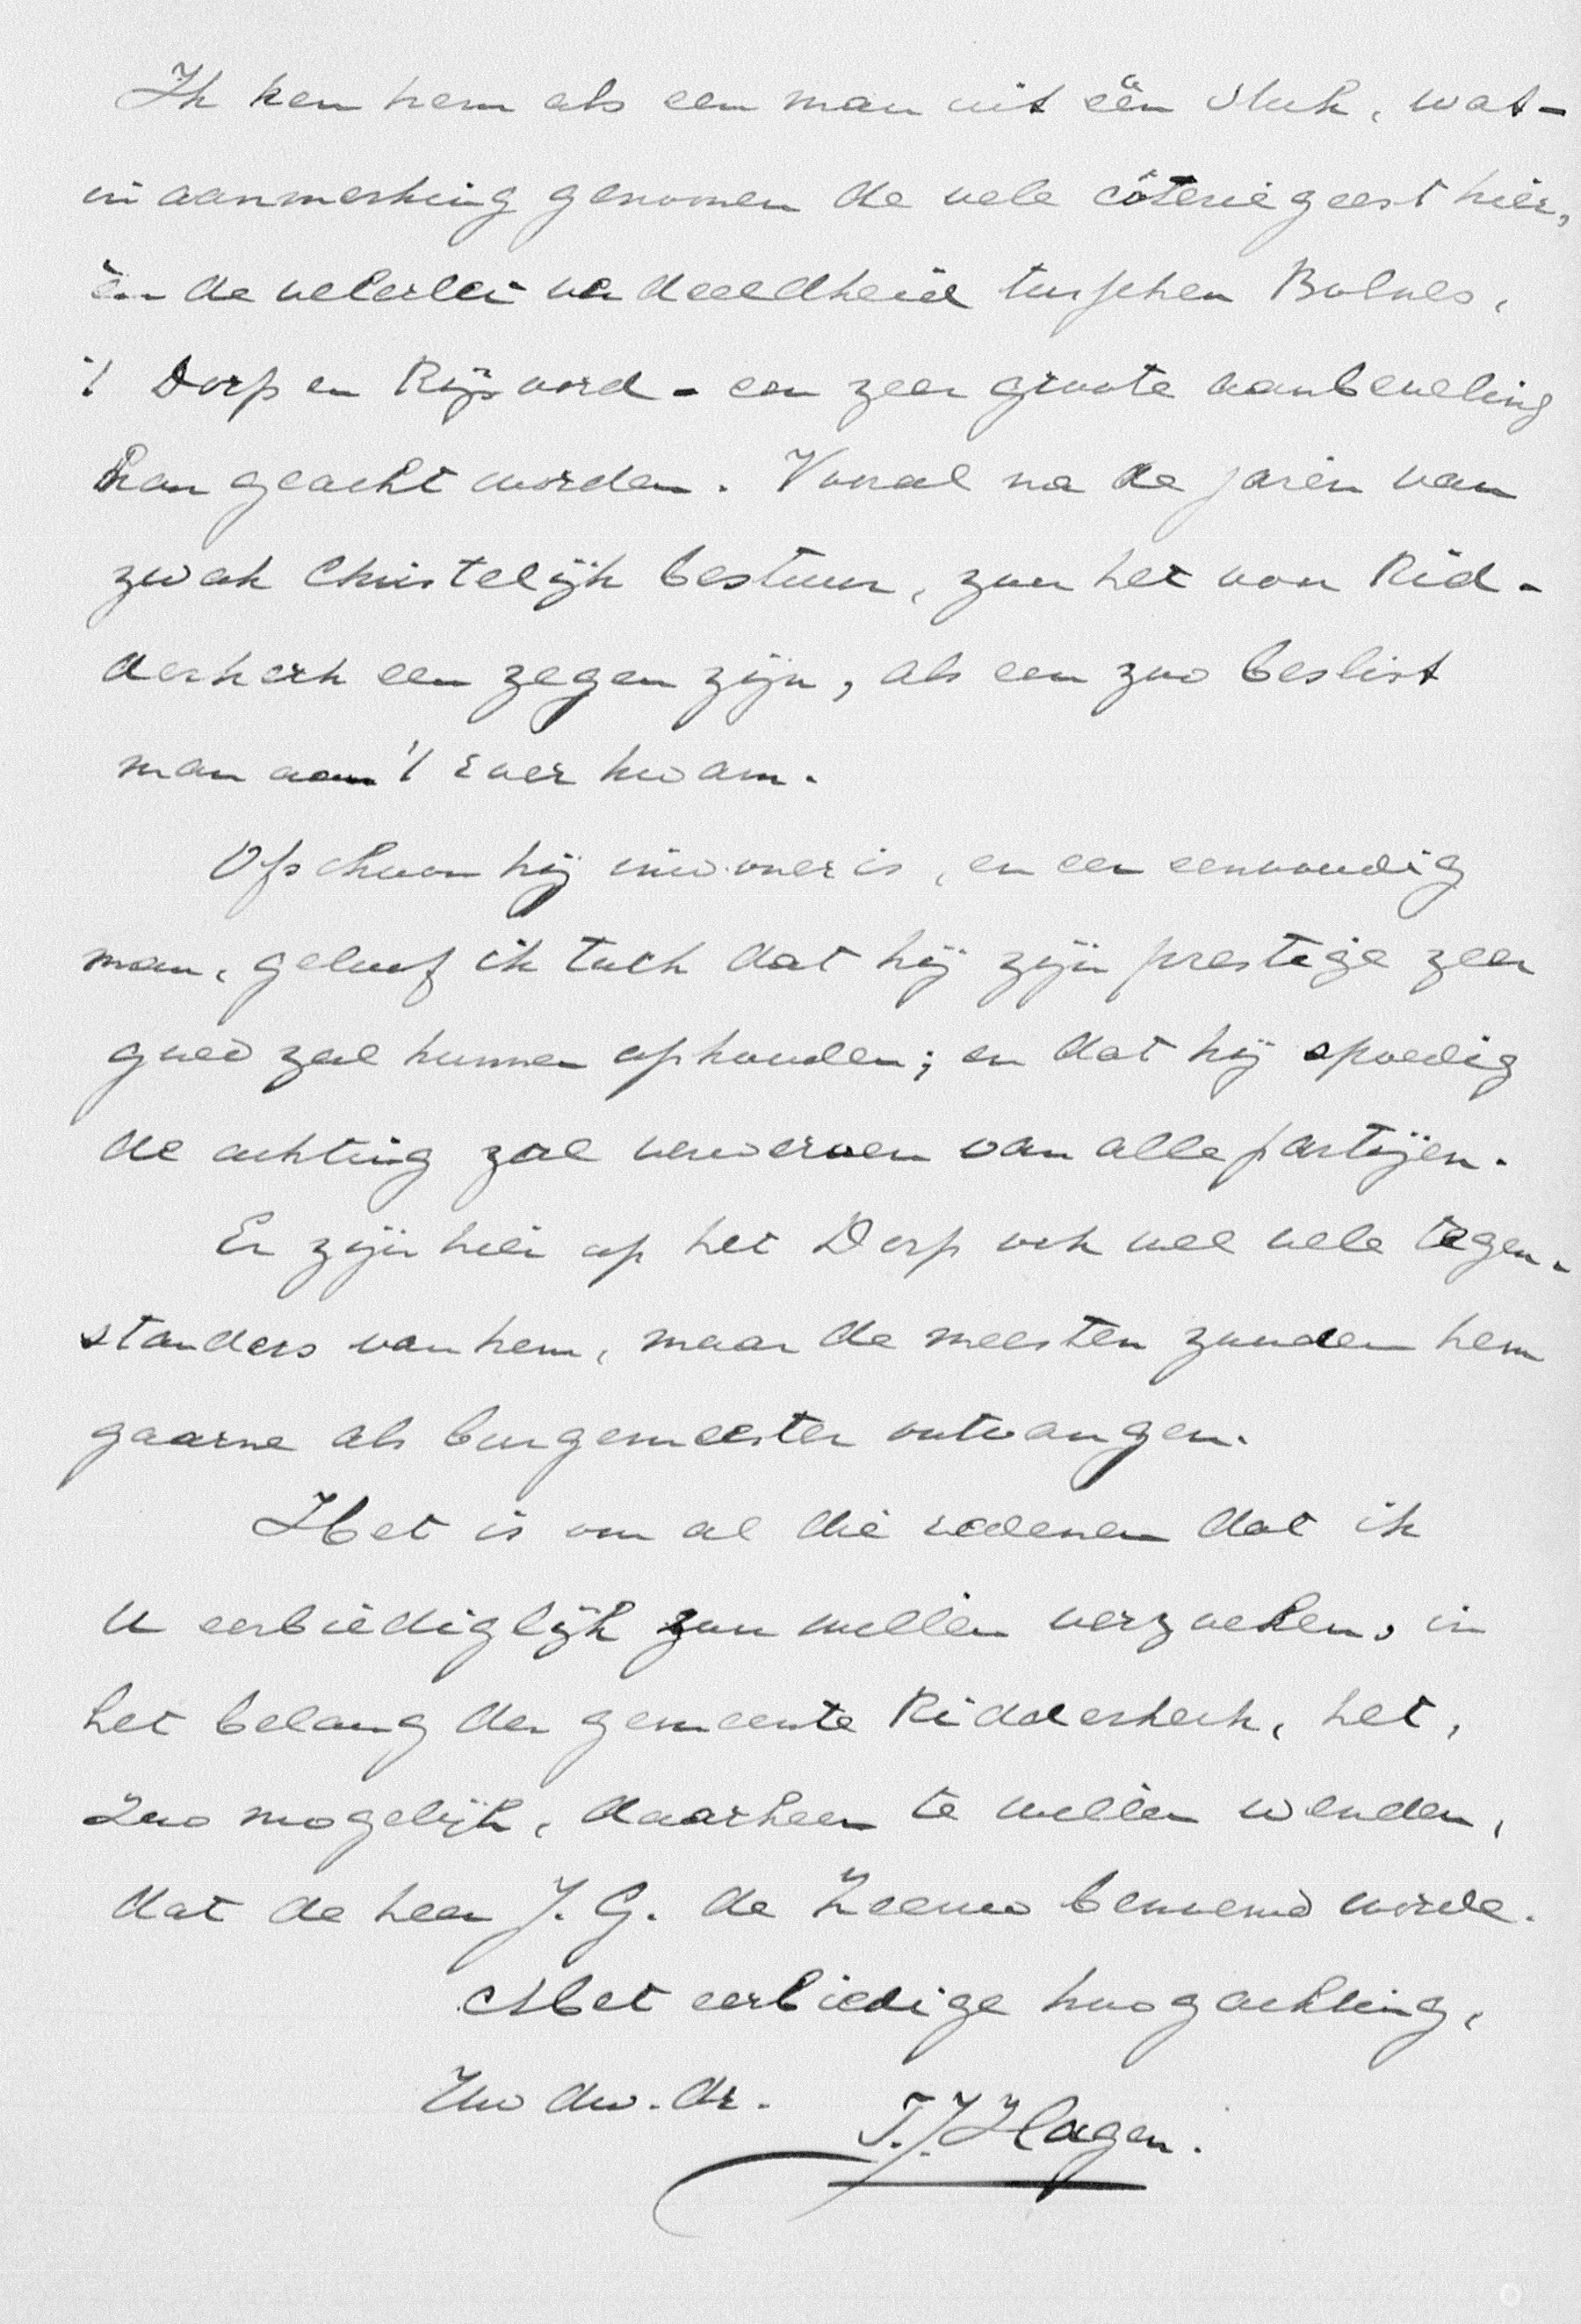 Ik ken hem als een man uit één stuk, wat-
in aanmerking genomen de vele côteriegeest hier,
èn de velerlei verdeeldheid tusschen Bolnes,
't Dorp en Rijsoord - een zeer groote aanbeveling
kan geacht worden. Vooral na de jaren van
zwak Christelijk bestuur, zou het voor Rid-
derkerk een zegen zijn, als een zoo beslist
man aan 't roer kwam.
Ofschoon hij inwoner is, en een eenvoudig
man, geloof ik toch dat hij zijn prestige zeer
goed zal kunnen ophouden; en dat hij spoedig
de achting zal verwerven van alle partijen.
Er zijn hier op het Dorp ook wel vele tegen-
standers van hem, maar de meesten zouden hem
gaarne als burgemeester ontvangen.
Het is om al die redenen dat ik
U eerbiediglijk zou willen verzoeken, in
het belang der gemeente Ridderkerk, het,
zoo mogelijk, daarheen te willen wenden,
dat de heer J. G. de Zeeuw benoemd worde.
Met eerbiedige hoogachting,
Uw dw. dr.
T. J. Hagen.